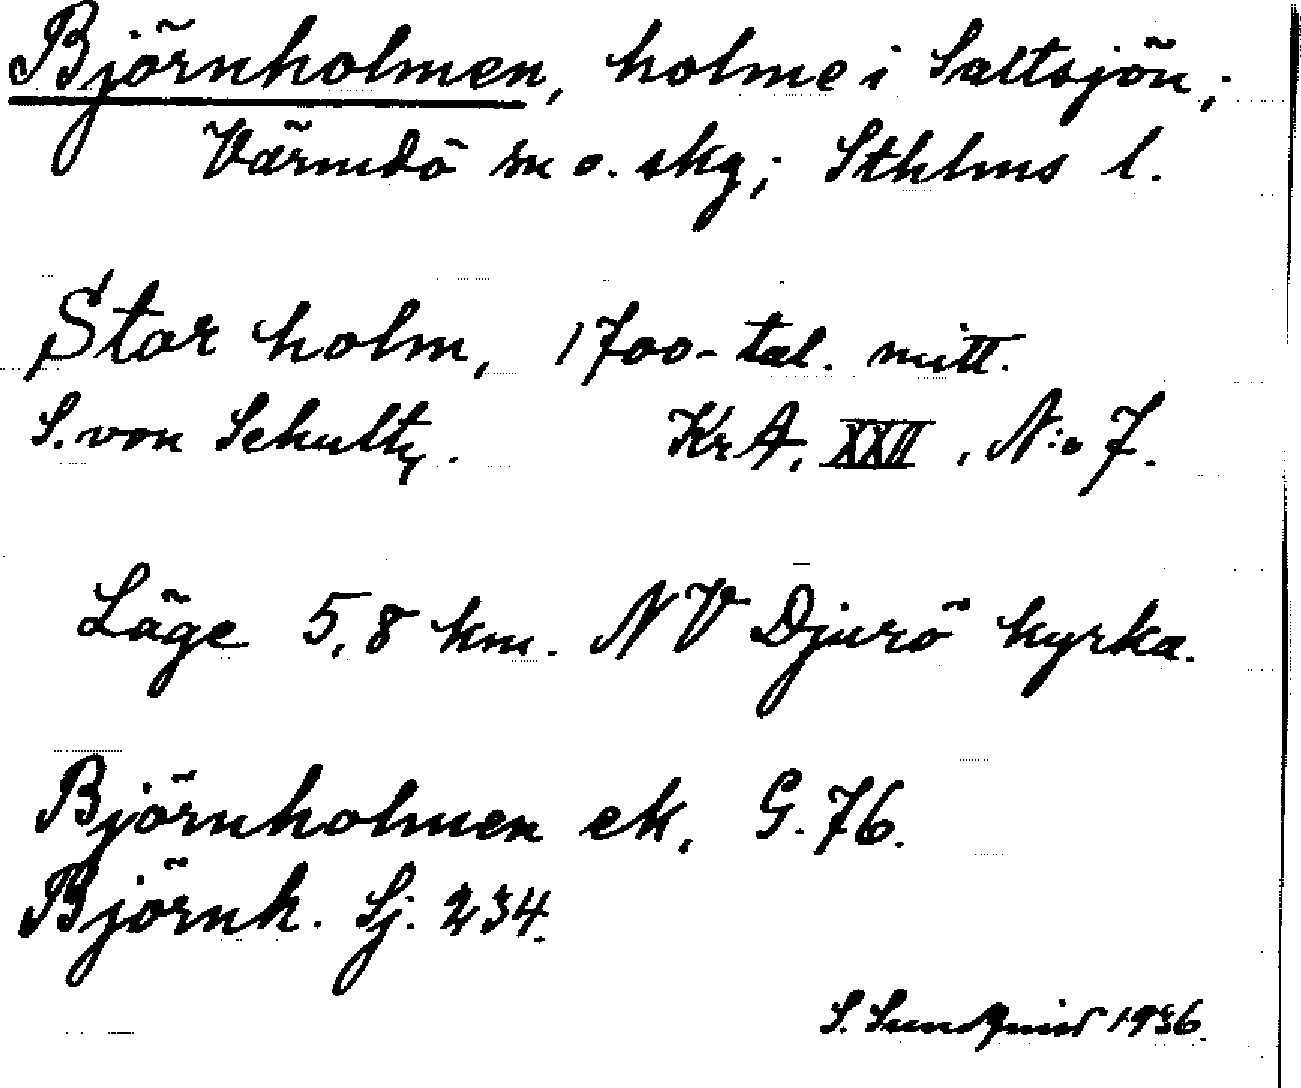 Björnholmen, holme i Saltsjön;
Värmdö sn o. skg; Sthlms l.
Stor holm, 1700-tal. mitt.
S. von Schultz. KrA. XXII, N:o 7.
Läge 5,8 km. NV Djurö kyrka.
Björnholmen ek, G. 76.
Björnh. Sj. 234.
S. Sundquist 1936.